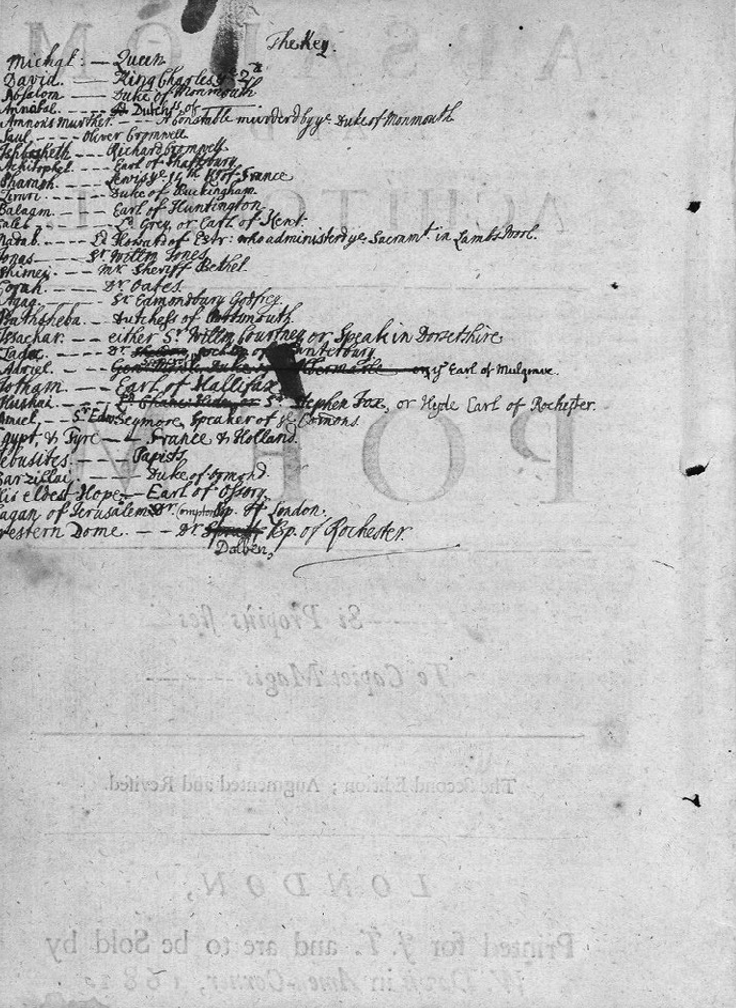 The Key.
Michal: — Queen
David. — King Charles ye 2d
Absalom — Duke of Monmouth
Annabal. — Dutchss of
Amnons Murther. — A Constable murderd by ye Duke of Monmouth
Saul — Oliver Cromwell
Ishbosheth — Richard Cromwell
Achitophel — Earl of Shaftsbury
Pharaoh. — Lewis ye 14th K of France
Zimri — Duke of Buckingham
Balaam — Earl of Huntington
Caleb — Ld Grey, or Earl of Kent.
Nadab. — Ld Howard of Escr: who administerd ye Sacramt in Lambs Wool.
Jonas — Sr Willm Jones
Shimei — Mr Sheriff Bethel.
Corah. — Dr Oates.
Agag. — Sr Edmondbury Godfrey.
Bathsheba. — Dutchess of Portsmouth
Issachar. — either Sr Willm Courtney or Speak in Dorsetshire
Zadoc — Dr Canterbury.
Adriel. — or ye Earl of Mulgrave.
Jotham. — Earl of Hallifax
Hushai — Sr Stephen Fox, or Hyde Earl of Rochester.
Amiel, — Sr Edw Seymore Speaker of ye Comons.
Egypt, & Tyre — France & Holland.
Jebusites. — Papists
Barzillai — Duke of Ormond.
His eldest Hope — Earl of Ossory
Sagan of Jerusalem Dr Compton Bp. of London.
Western Dome. — Dr Bp. of Rochester.
Dolben,
ABSALOM
ACHITO
POEM
Si Propiùs stes
Te Capiet Magis
The Second Edition; Augmented and Revised.
LONDON,
Printed for J. T. and are to be Sold by
W. Davis in Amen-Corner, 1682